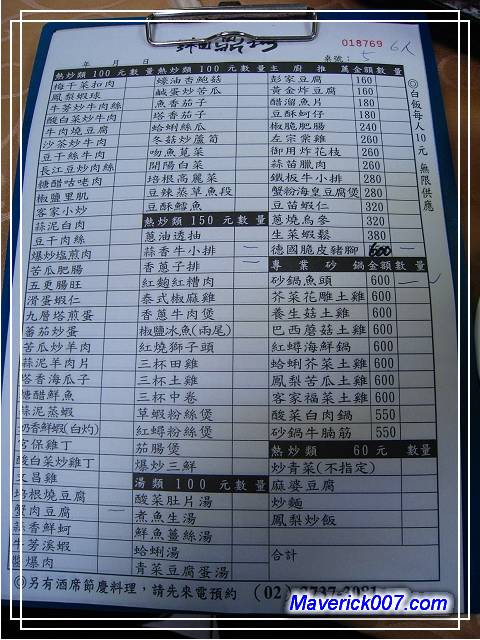 018769 6人
年 月 日
桌號： 5
熱炒類 100 元 數量
梅干菜扣肉
鳳梨蝦球
牛蒡炒牛肉絲
酸白菜炒牛肉
牛肉燒豆腐
沙茶炒牛肉
豆干絲牛肉
長江豆炒肉絲
糖醋咕咾肉
椒鹽里肌
客家小炒
蒜泥白肉
豆干肉絲
爆炒塩煎肉
苦瓜肥腸
五更腸旺
滑蛋蝦仁
九層塔煎蛋
蕃茄炒蛋
苦瓜炒羊肉
蒜泥羊肉片
塔香海瓜子
糖醋鮮魚
蒜泥蒸蝦
奶香鮮蝦(白灼)
宮保雞丁
酸白菜炒雞丁
文昌雞
培根燒豆腐
蟹肉豆腐
蒜香鮮蚵
牛蒡溪蝦
醬爆肉
熱炒類 100 元 數量
蠔油杏鮑菇
鹹蛋炒苦瓜
魚香茄子
塔香茄子
蛤蜊絲瓜
冬菇炒蘆筍
吻魚莧菜
開陽白菜
培根高麗菜
豆辣蒸草魚段
豆酥鱈魚
熱炒類 150 元 數量
蔥油透抽
蒜香牛小排
香蔥子排
紅麴紅糟肉
泰式椒麻雞
香蔥牛肉煲
椒鹽冰魚(兩尾)
紅燒獅子頭
三杯田雞
三杯土雞
三杯中卷
草蝦粉絲煲
紅蟳粉絲煲
茄腸煲
爆炒三鮮
湯類 100 元 數量
酸菜肚片湯
煮魚生湯
鮮魚薑絲湯
蛤蜊湯
青菜豆腐蛋湯
主廚推薦 金額 數量
彭家豆腐 160
黃金炸豆腐 160
醋溜魚片 180
豆酥蚵仔 180
椒脆肥腸 240
左宗棠雞 260
御用炸花枝 260
蒜苗臘肉 260
鐵板牛小排 280
蟹粉海皇豆腐煲 280
豆苗蝦仁 320
蔥燒烏參 320
生菜蝦鬆 380
德國脆皮豬腳 600
專業砂鍋 金額 數量
砂鍋魚頭 600
芥菜花雕土雞 600
養生菇土雞 600
巴西蘑菇土雞 600
紅蟳海鮮鍋 600
蛤蜊芥菜土雞 600
鳳梨苦瓜土雞 600
客家福菜土雞 600
酸菜白肉鍋 550
砂鍋牛腩筋 550
熱炒類 60 元 數量
炒青菜(不指定)
麻婆豆腐
炒麵
鳳梨炒飯
合計
◎白飯每人10元 無限供應
◎另有酒席節慶料理，請先來電預約 (02)
Maverick007.com